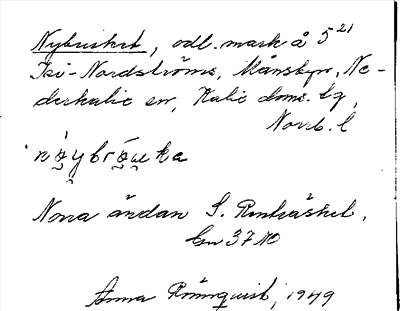 Nybruket, odl. mark å 5 21
Isi-Nordströms, Månsbyn, Ne-
derkalix sn, Kalix doms. tg,
Norrb. l
Norra ändan S. Renträsket.
Gn 37 NO
Anna Rönnquist, 1949